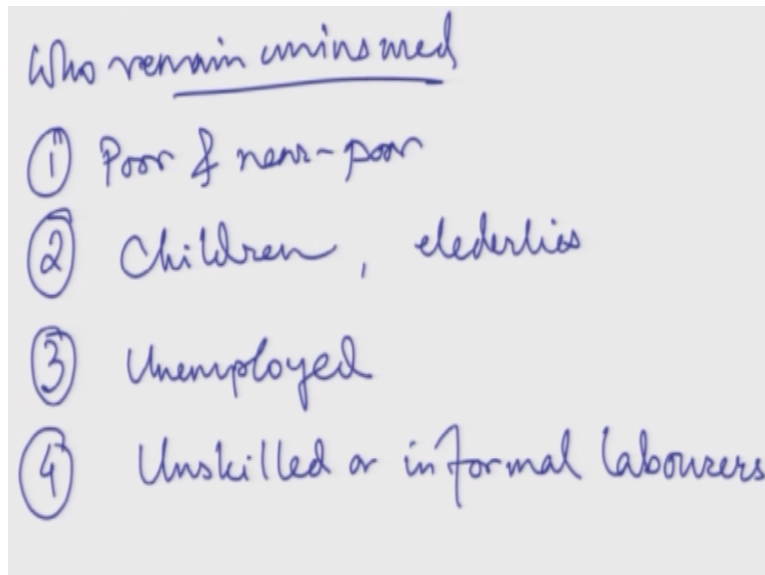 Who remain uninsured
① Poor & near-poor
② Children, elederlies
③ Unemployed
④ Unskilled or informal labourers